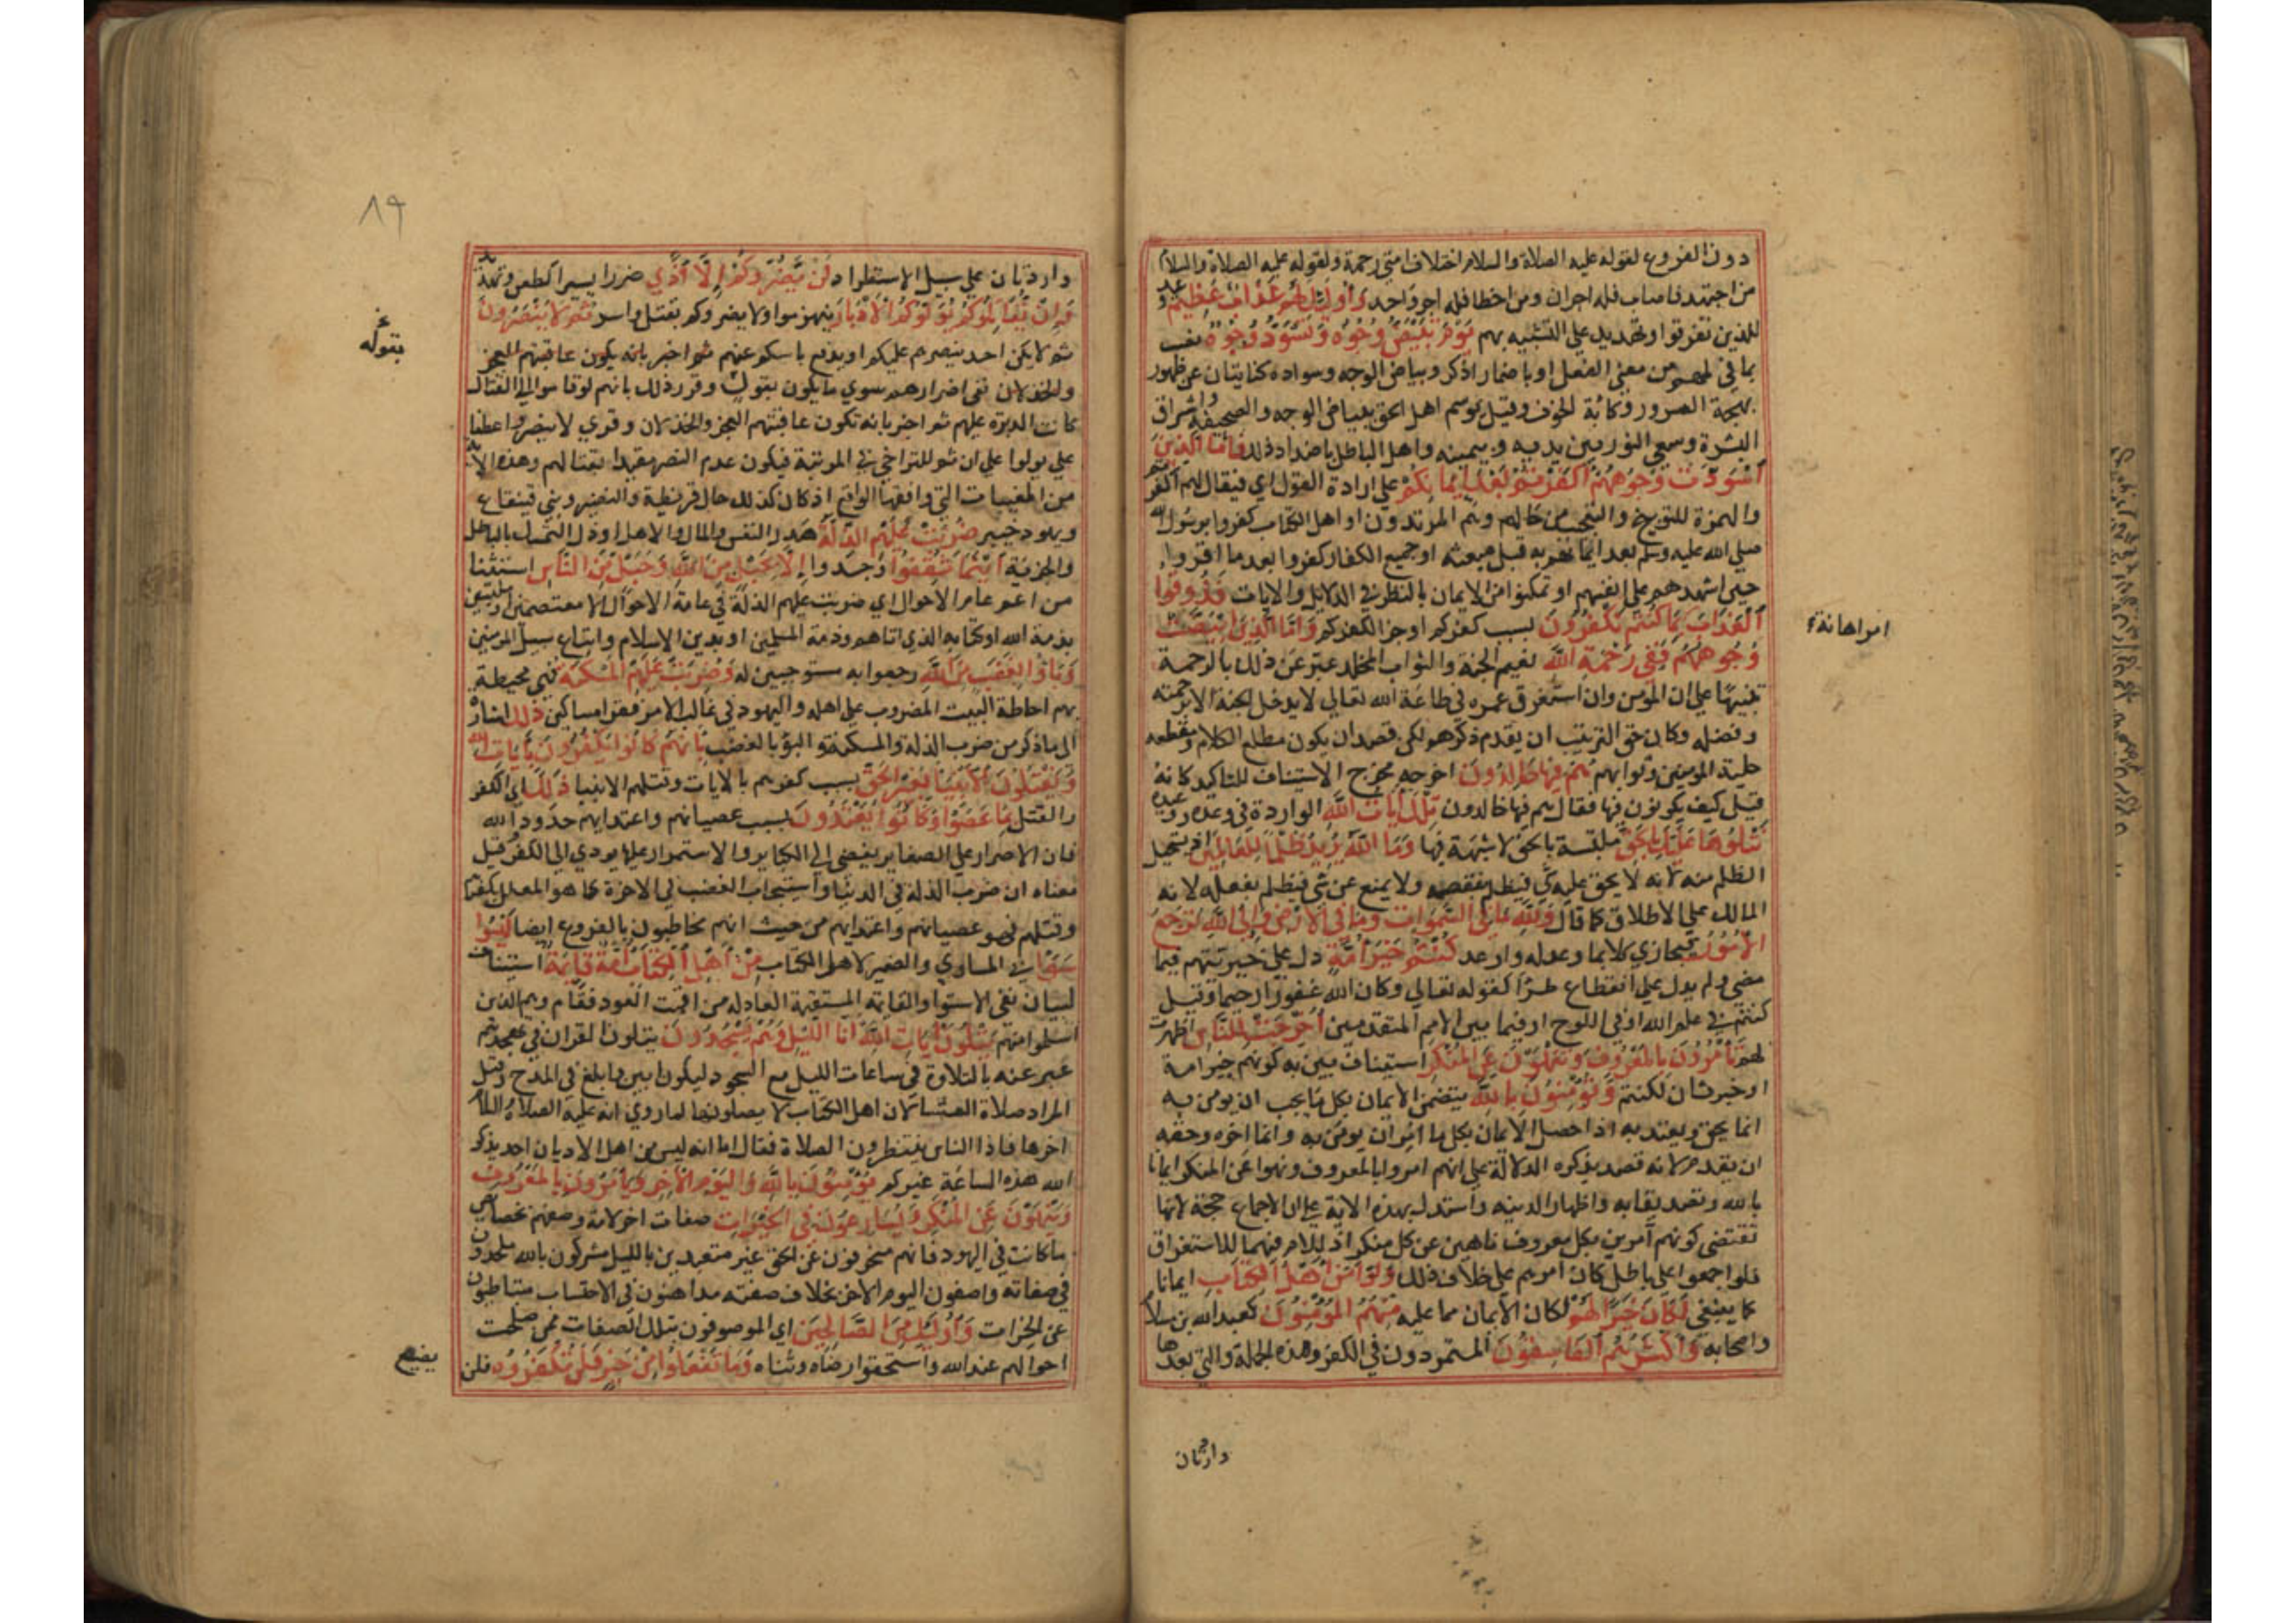 دون الفروع لقوله عليه الصلاة والسلام اختلاف امتي رحمة ولقوله عليه الصلاة والسلام
من اجتهد فاصاب فله اجران ومن اخطا فله اجر واحد وَأُولَئِكَ لَهُمْ عَذَابٌ عَظِيمٌ وعيد
للذين تفرقوا وتهديد علي التشبه بهم يَوْمَ تَبْيَضُّ وُجُوهٌ وَتَسْوَدُّ وُجُوهٌ نصب
بما في لهم من معني الفعل او باضمار اذكر وبياض الوجه وسواده كنايتان عن ظهور
بهجة السرور وكابة الخوف وقيل يوسم اهل الحق ببياض الوجه والصحيفة واشراق
البشرة وسعي النور بين يديه وبيمينه واهل الباطل باضداد ذلك فَأَمَّا الَّذِينَ
اسْوَدَّتْ وُجُوهُهُمْ أَكَفَرْتُمْ بَعْدَ إِيمَانِكُمْ علي ارادة القول اي فيقال لهم اكفرتم
والهمزة للتوبيخ والتعجب من حالهم وهم المرتدون او اهل الكتاب كفروا برسول الله
صلي الله عليه وسلم بعد ايمانهم به قبل مبعثه او جميع الكفار كفروا بعد ما اقروا
حين اشهدهم علي انفسهم او تمكنوا من الايمان بالنظر في الدلايل والايات فَذُوقُوا
الْعَذَابَ بِمَا كُنْتُمْ تَكْفُرُونَ بسبب كفركم او جزا لكفركم وَأَمَّا الَّذِينَ ابْيَضَّتْ
امر اهانة
وُجُوهُهُمْ فَفِي رَحْمَةِ اللَّهِ نعيم الجنة والثواب المخلد عبر عن ذلك بالرحمة
تنبيها علي ان المؤمن وان استغرق عمره في طاعة الله تعالي لا يدخل الجنة الا برحمته
وفضله وكان حق الترتيب ان يقدم ذكرهم لكن قصد ان يكون مطلع الكلام ومقطعه
حلية المؤمنين وثوابهم هُمْ فِيهَا خَالِدُونَ اخرجه مخرج الاستيناف للتاكيد كانه
قيل كيف يكونون فيها فقال هم فيها خالدون تِلْكَ آيَاتُ اللَّهِ الواردة في وعده ووعيده
نَتْلُوهَا عَلَيْكَ بِالْحَقِّ ملتبسة بالحق لا شبهة فيها وَمَا اللَّهُ يُرِيدُ ظُلْمًا لِلْعَالَمِينَ اذ يستحيل
الظلم منه لانه لا يحق عليه شي فيظلم بنقصه ولا يمنع عن شي فيظلم بفعله لانه
المالك علي الاطلاق كما قال وَلِلَّهِ مَا فِي السَّمَوَاتِ وَمَا فِي الْأَرْضِ وَإِلَى اللَّهِ تُرْجَعُ
الْأُمُورُ فيجازي كلا بما وعد له واوعد كُنْتُمْ خَيْرَ أُمَّةٍ دل علي خيريتهم فيما
مضي ولم يدل علي انقطاع طرا كقوله تعالي وكان الله غفورا رحيما وقيل
كنتم في علم الله او في اللوح او فيما بين الامم المتقدمين أُخْرِجَتْ لِلنَّاسِ اظهرت
لهم تَأْمُرُونَ بِالْمَعْرُوفِ وَتَنْهَوْنَ عَنِ الْمُنْكَرِ استيناف بين به كونهم خير امة
او خبر ثان لكنتم وَتُؤْمِنُونَ بِاللَّهِ يتضمن الايمان بكل ما يجب ان يومن به
انما يحق ويعتد به اذا حصل الايمان بكل ما امر ان يومن به وانما اخره وحقه
ان يقدم لانه قصد بذكره الدلالة علي انهم امروا بالمعروف ونهوا عن المنكر ايمانا
بالله وتصديقا به واظهارا لدينه واستدل بهذه الاية علي ان الاجماع حجة لانها
تقتضي كونهم آمرين بكل معروف ناهين عن كل منكر اذ اللام فيهما للاستغراق
فلو اجمعوا علي باطل كان امرهم علي خلاف ذلك وَلَوْ آمَنَ أَهْلُ الْكِتَابِ ايمانا
كما ينبغي لَكَانَ خَيْرًا لَهُمْ لكان الايمان مما عليه مِنْهُمُ الْمُؤْمِنُونَ كعبد الله بن سلام
واصحابه وَأَكْثَرُهُمُ الْفَاسِقُونَ المتمردون في الكفر وهذه الجملة والتي بعدها
واردتان
٨٩
واردتان علي سبيل الاستطراد لَنْ يَضُرُّوكُمْ إِلَّا أَذًى ضررا يسيرا كطعن وتهديد
وَإِنْ يُقَاتِلُوكُمْ يُوَلُّوكُمُ الْأَدْبَارَ ينهزموا ولا يضروكم بقتل واسر ثُمَّ لَا يُنْصَرُونَ
ثم لا يكن احد ينصرهم عليكم او يدفع باسكم عنهم ثم اخبر بانه يكون عاقبتهم العجز
بقوله
والخذلان نفي اضرارهم سوي ما يكون بقول وقرر ذلك بانهم لو قاموا الي القتال
كانت الدبرة عليهم ثم اخبر بانه تكون عاقبتهم العجز والخذلان وقري لا ينصروا عطفا
علي يولوا علي ان ثم للتراخي في المرتبة فيكون عدم النصر مقيدا بقتالهم وهذه الاية
من المغيبات التي وافقها الواقع اذ كان كذلك حال قريظة والنضير وبني قينقاع
ويهود خيبر ضُرِبَتْ عَلَيْهِمُ الذِّلَّةُ هدر النفس والمال والاهل او ذل التمسك بالباطل
والجزية أَيْنَمَا ثُقِفُوا وجدوا إِلَّا بِحَبْلٍ مِنَ اللَّهِ وَحَبْلٍ مِنَ النَّاسِ استثنا
من اعم عام الاحوال اي ضربت عليهم الذلة في عامة الاحوال الا معتصمين او ملتبسين
بذمة الله او كتابه الذي اتاهم وذمة المسلمين او بدين الاسلام واتباع سبيل المومنين
وَبَاؤُا بِغَضَبٍ مِنَ اللَّهِ رجعوا به مستوجبين له وَضُرِبَتْ عَلَيْهِمُ الْمَسْكَنَةُ فهي محيطة
بهم احاطة البيت المضروب علي اهله واليهود في غالب الامر فقرا مساكين ذَلِكَ اشارة
الي ما ذكر من ضرب الذلة والمسكنة والبؤ بالغضب بِأَنَّهُمْ كَانُوا يَكْفُرُونَ بِآيَاتِ اللَّهِ
وَيَقْتُلُونَ الْأَنْبِيَاءَ بِغَيْرِ حَقٍّ بسبب كفرهم بالايات وقتلهم الانبيا ذَلِكَ اي الكفر
والقتل بِمَا عَصَوْا وَكَانُوا يَعْتَدُونَ بسبب عصيانهم واعتدايهم حدود الله
فان الاصرار علي الصغاير يفضي الي الكباير والاستمرار عليها يودي الي الكفر وقيل
معناه ان ضرب الذلة في الدنيا واستيجاب الغضب في الاخرة كما هو المعلل بكفرهم
وقتلهم فهو عصيانهم واعتدايهم من حيث انهم مخاطبون بالفروع ايضا لَيْسُوا
سَوَاءً في المساوي والضمير لاهل الكتاب مِنْ أَهْلِ الْكِتَابِ أُمَّةٌ قَائِمَةٌ استيناف
لبيان نفي الاستوا والقائمة المستقيمة العادلة من اقمت العود فقام وهم الذين
اسلموا منهم يَتْلُونَ آيَاتِ اللَّهِ آنَاءَ اللَّيْلِ وَهُمْ يَسْجُدُونَ يتلون القران في تهجدهم
عبر عنه بالتلاوة في ساعات الليل مع السجود ليكون ابين وابلغ في المدح وقيل
المراد صلاة العشا لان اهل الكتاب لا يصلونها لما روي انه عليه الصلاة والسلام
اخرها فاذا الناس ينتظرون الصلاة فقال اما انه ليس من اهل الاديان احد يذكر
الله هذه الساعة غيركم يُؤْمِنُونَ بِاللَّهِ وَالْيَوْمِ الْآخِرِ وَيَأْمُرُونَ بِالْمَعْرُوفِ
وَيَنْهَوْنَ عَنِ الْمُنْكَرِ وَيُسَارِعُونَ فِي الْخَيْرَاتِ صفات اخر لامة وصفهم بخصايص
ما كانت في اليهود فانهم منحرفون عن الحق غير متعبدين بالليل مشركون بالله ملحدون
في صفاته واصفون اليوم الاخر بخلاف صفته مداهنون في الاحتساب متباطئون
عن الخيرات وَأُولَئِكَ مِنَ الصَّالِحِينَ اي الموصوفون بتلك الصفات ممن صلحت
احوالهم عند الله واستحقوا رضاه وثناه وَمَا تَفْعَلُوا مِنْ خَيْرٍ فَلَنْ تُكْفَرُوهُ فلن
يضيع